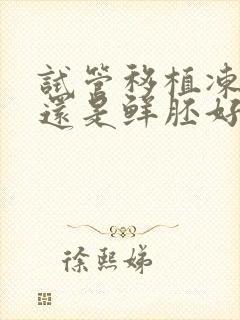 試管移植凍
還是鮮胚好
徐熙娣